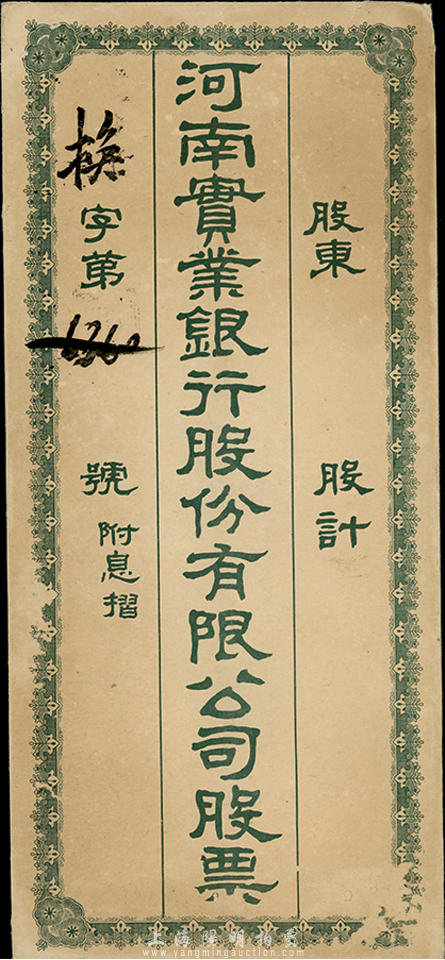 股東
股計
河南實業銀行股份有限公司股票
換字第1260號附息摺
上海陽明拍賣
www.yangmingauction.com